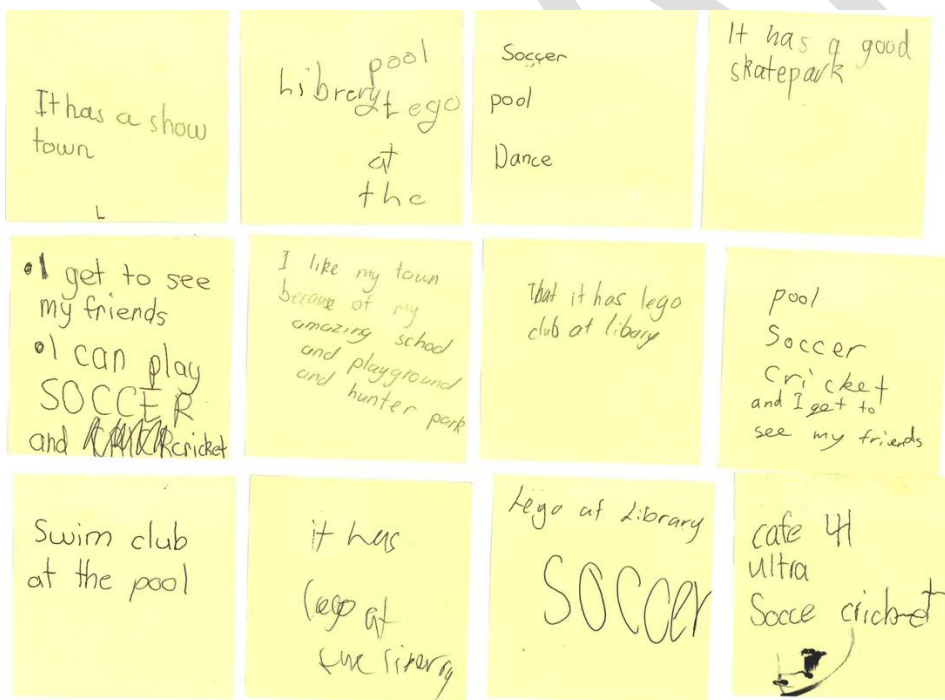 It has a show
town
L
pool
Library Lego
at
the
Soccer
pool
Dance
It has a good
skatepark
• I get to see
my friends
• I can play
SOCCER
and cricket
I like my town
because of my
amazing school
and playground
and hunter park
That it has lego
club at libary
pool
Soccer
Cricket
and I get to
see my friends
Swim club
at the pool
it has
lego at
the
Lego at Library
SOCCER
cafe 41
ultra
Socce cricket